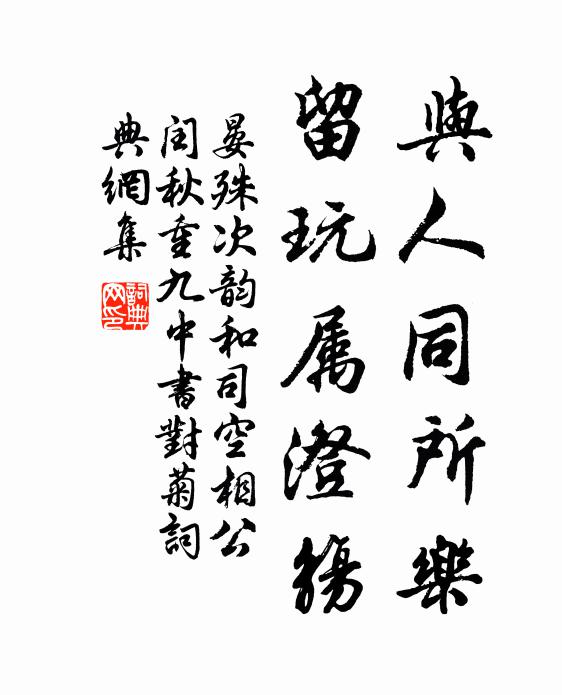 與人同所樂
留玩属澄觴
晏殊次韵和司空相公
闰秋重九中書對菊詞
典網集
詞典
网印